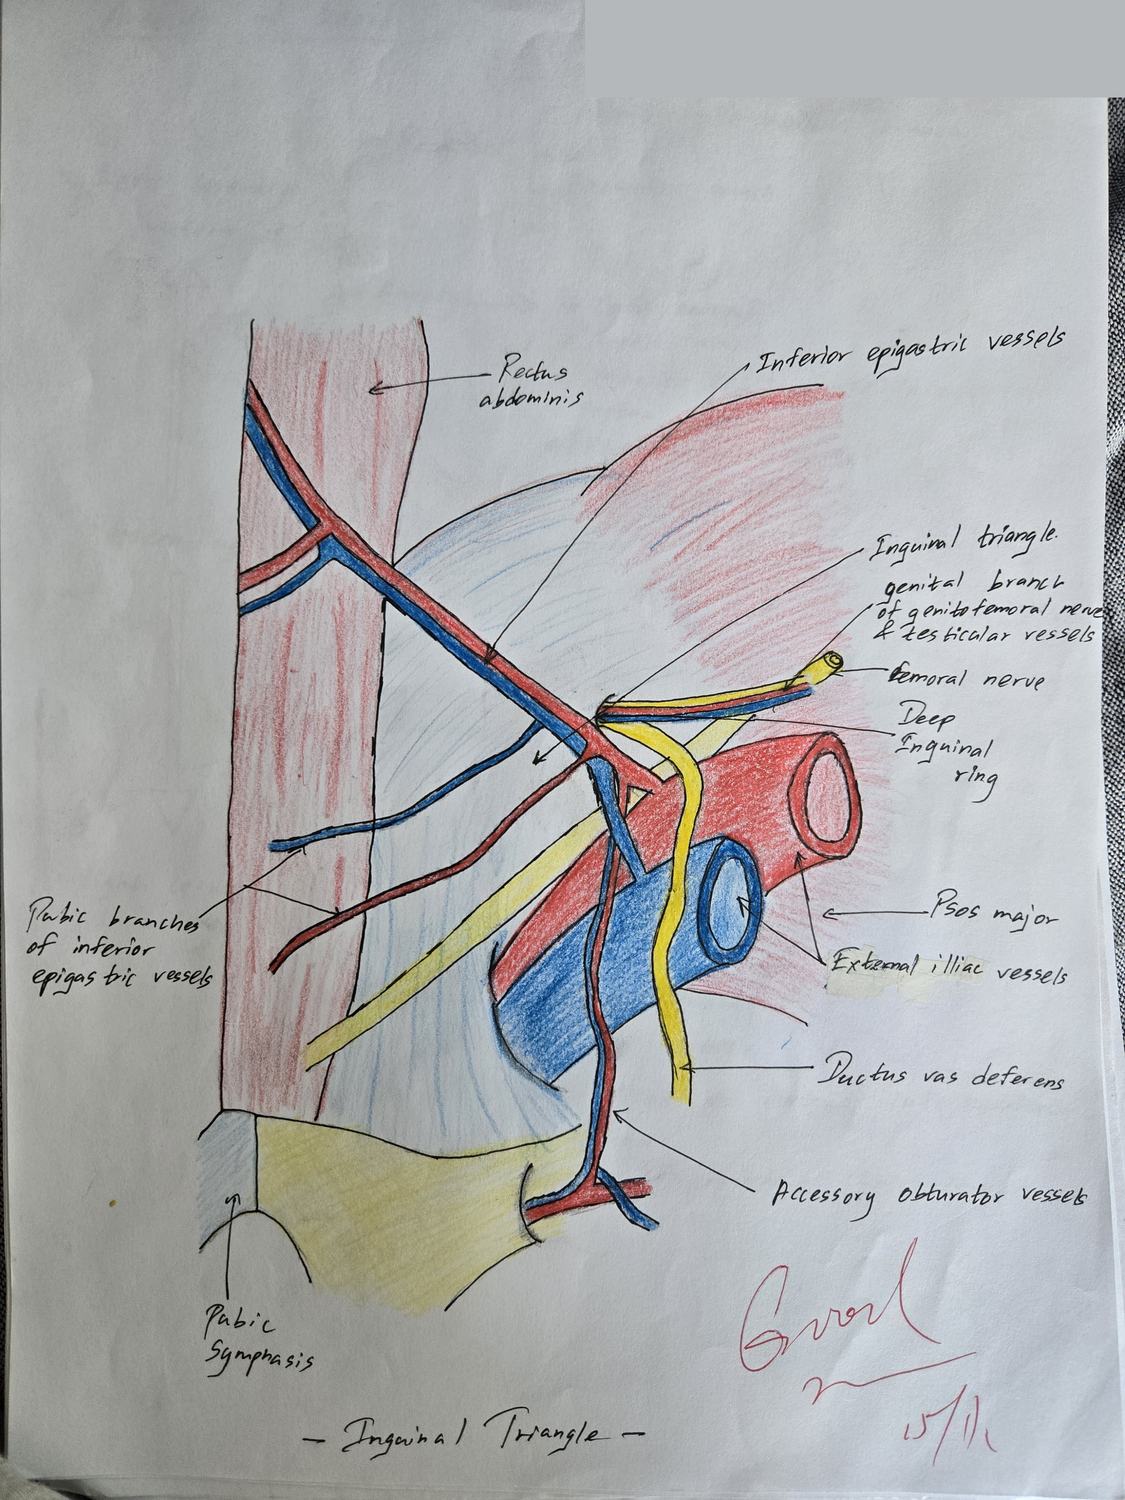 Rectus
abdominis
Inferior epigastric vessels
Inguinal triangle.
genital branch
of genitofemoral nerve
& testicular vessels
femoral nerve
Deep
Inguinal
ring
Psos major
External illiac vessels
Ductus vas deferens
Accessory obturator vessels
Pubic branches
of inferior
epigastric vessels
Pubic
Symphasis
Good
15/11
- Inguinal Triangle -